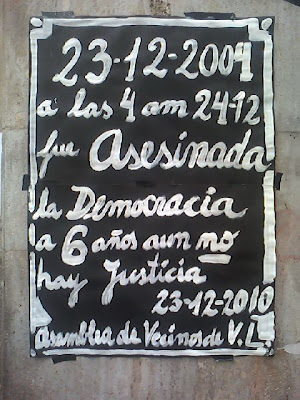 23-12-2004
a las 4 am 24-12
fue Asesinada
la Democracia
a 6 años aun no
hay Justicia
23-12-2010
Asamblea de Vecinos de V. L.